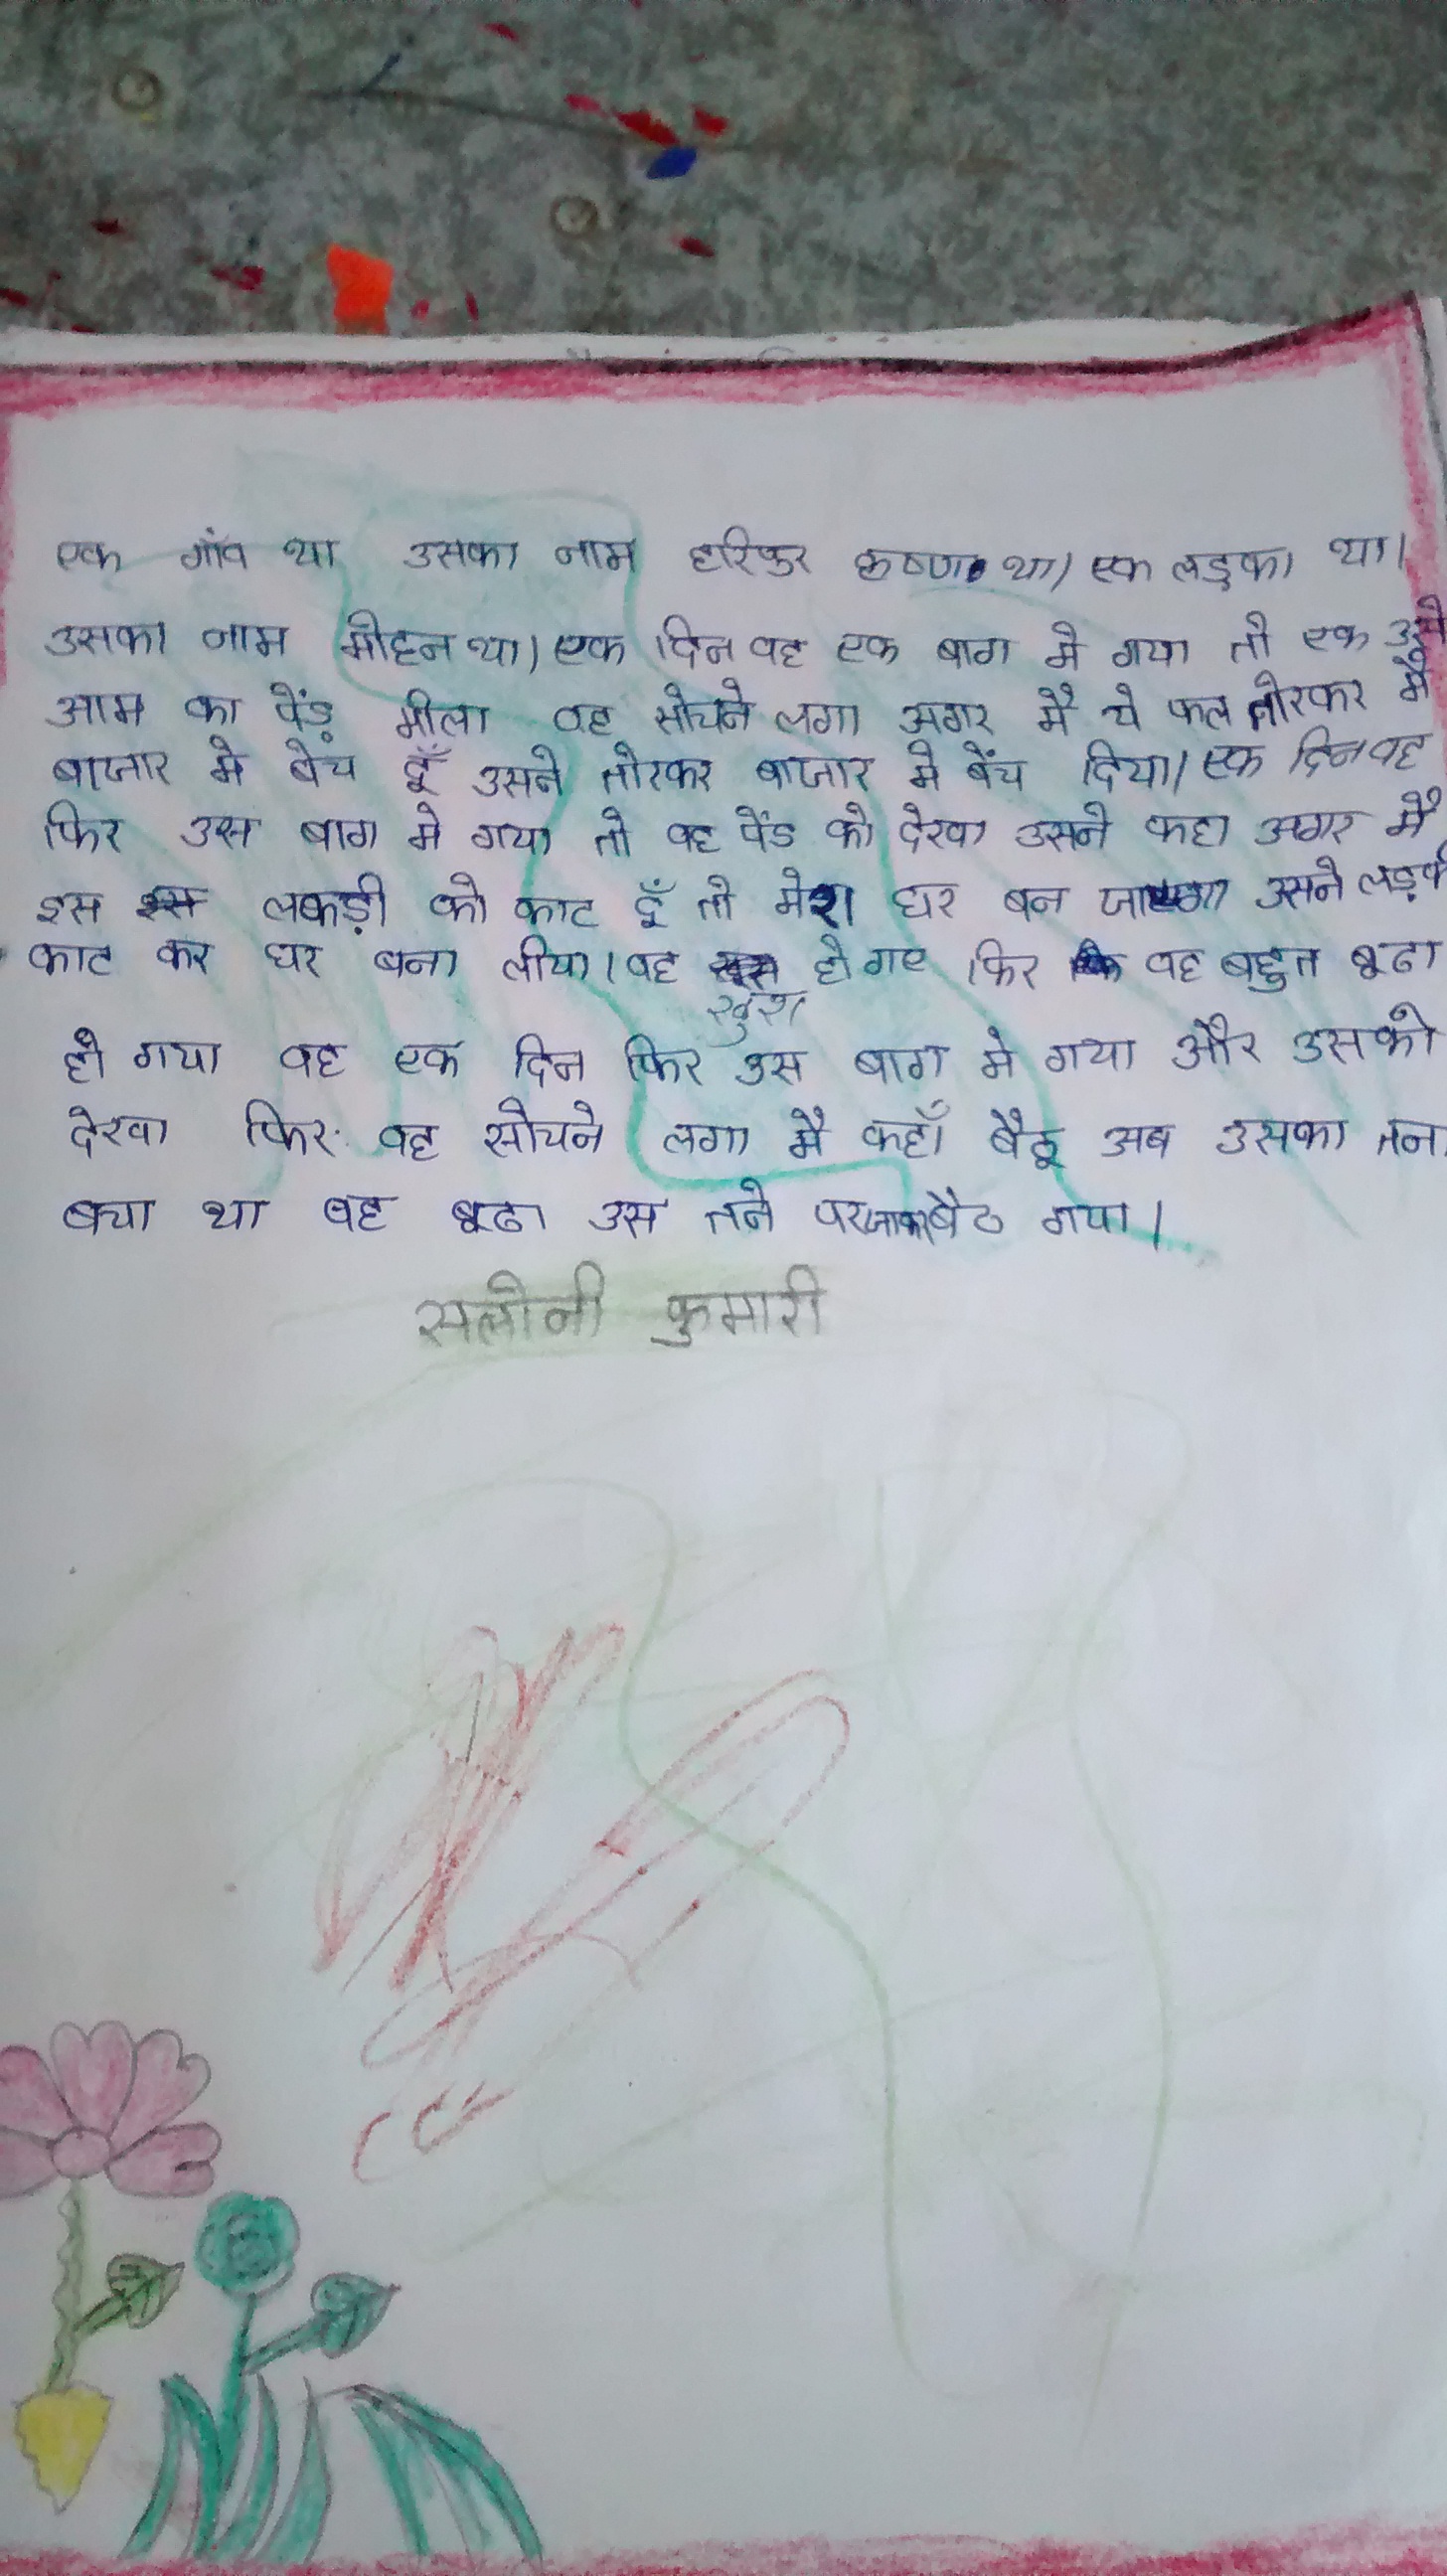 एक गाँव था उसका नाम हरिपुर कृष्णा था। एक लड़का था।
उसका नाम मोहन था। एक दिन वह एक बाग मे गया तो एक उसे
आम का पेंड़ मीला वह सोचने लगा अगर मै ये फल तोरकर मै
बाजार मे बेंच दूँ उसने तोरकर बाजार मे बेंच दिया। एक दिन वह
फिर उस बाग मे गया तो वह पेंड को देखा उसने कहा अगर मै
इस लकड़ी को काट दूँ तो मेरा घर बन जाएगा उसने लड़की
काट कर घर बना लीया। वह हो गए फिर वह बहुत बूढा
खुश
हो गया वह एक दिन फिर उस बाग मे गया और उसको
देखा फिर वह सोचने लगा मै कहाँ बैठू अब उसका तना
बचा था वह बूढा उस तने पर जाकर बैठ गया।
सलोनी कुमारी